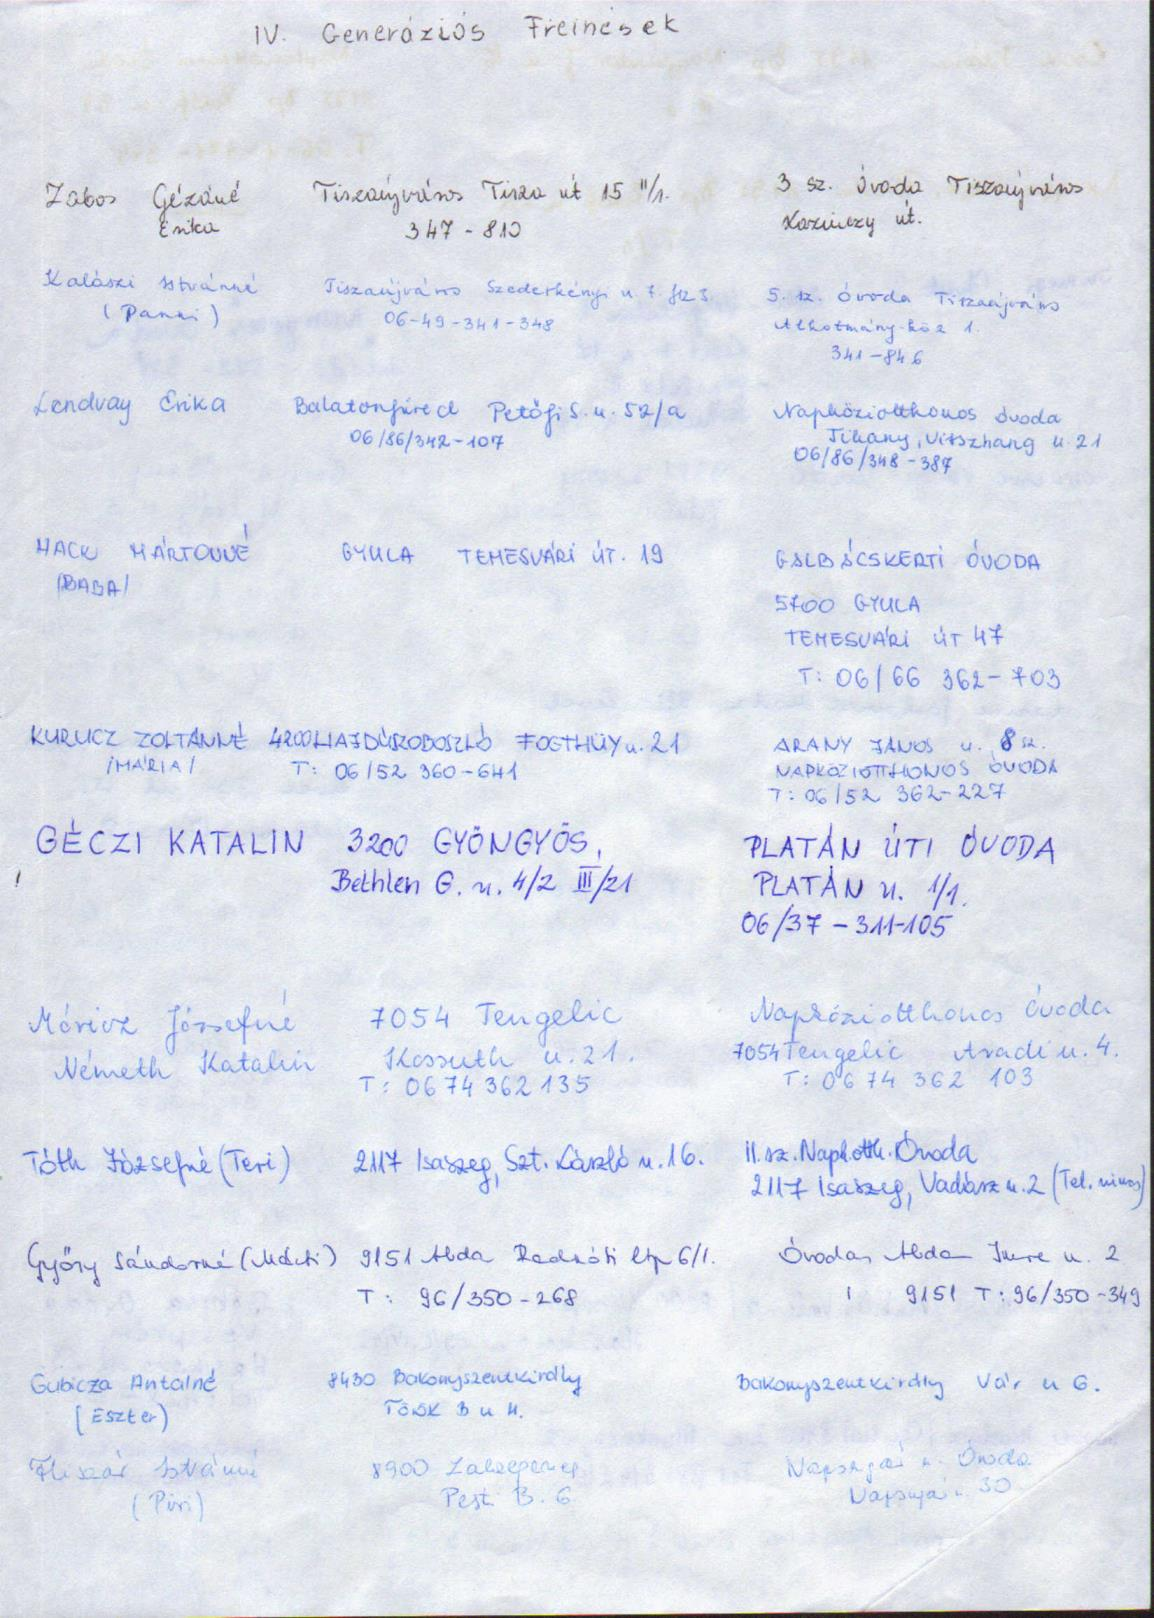 IV. Generáziós Freinések
Zabos Gézáné Tiszaújváros Tisza út 15 II/1. 3 sz. óvoda Tiszaújváros
Erika 347-810 Kazinczy út.
Kalászi Istvánné Tiszaújváros Szederkényi u. 7. fsz 3 5. sz. óvoda Tiszaújváros
(Panni) 06-49-341-348 Alkotmány-köz 1.
341-846
Lendvay Erika Balatonfüred Petőfi S. u. 52/a Napköziotthonos óvoda
06/86/342-107 Tihany, Vitszhang u. 21
06/86/348-387
HACK MÁRTONNÉ GYULA TEMESVÁRI ÚT. 19 GALBÁCSKERTI ÓVODA
/BABA/ 5700 GYULA
TEMESVÁRI ÚT 47
T: 06/66 362-703
KURUCZ ZOLTÁNNÉ 4200 HAJDÚSZOBOSZLÓ FOGTHÜY u. 21 ARANY JÁNOS u. 8 sz.
/MÁRIA/ T: 06/52 360-641 NAPKÖZIOTTHONOS ÓVODA
T: 06/52 362-227
GÉCZI KATALIN 3200 GYÖNGYÖS, PLATÁN ÚTI ÓVODA
Bethlen G. u. 4/2 III/21 PLATÁN u. 1/1.
06/37-311-105
Móricz Józsefné 7054 Tengelic Napköziotthonos Óvoda
Németh Katalin Kossuth u. 21. 7054 Tengelic Aradi u. 4.
T: 06 74 362 135 T: 06 74 362 103
Tóth Józsefné (Teri) 2117 Isaszeg, Szt. László u. 16. II. sz. Napk.otth. Óvoda
2117 Isaszeg, Vadász u. 2 (Tel. nincs)
Győry Sándorné (Márti) 9151 Abda Radnóti ltp 6/1. Óvodas Abda Imre u. 2
T: 96/350-268 9151 T: 96/350-349
Gubicza Antalné 8430 Bakonyszentkirály Bakonyszentkirály Vár u 6.
(Eszter)
Fliszár Istvánné 8900 Zalaegerszeg Napsugár u. Óvoda
(Piri) Pest B. 6 Napsugár u. 30